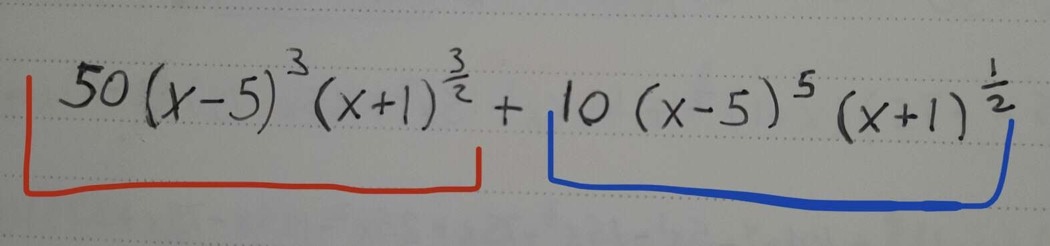 50(x-5)^3 (x+1)^{3/2} + 10(x-5)^5 (x+1)^{1/2}